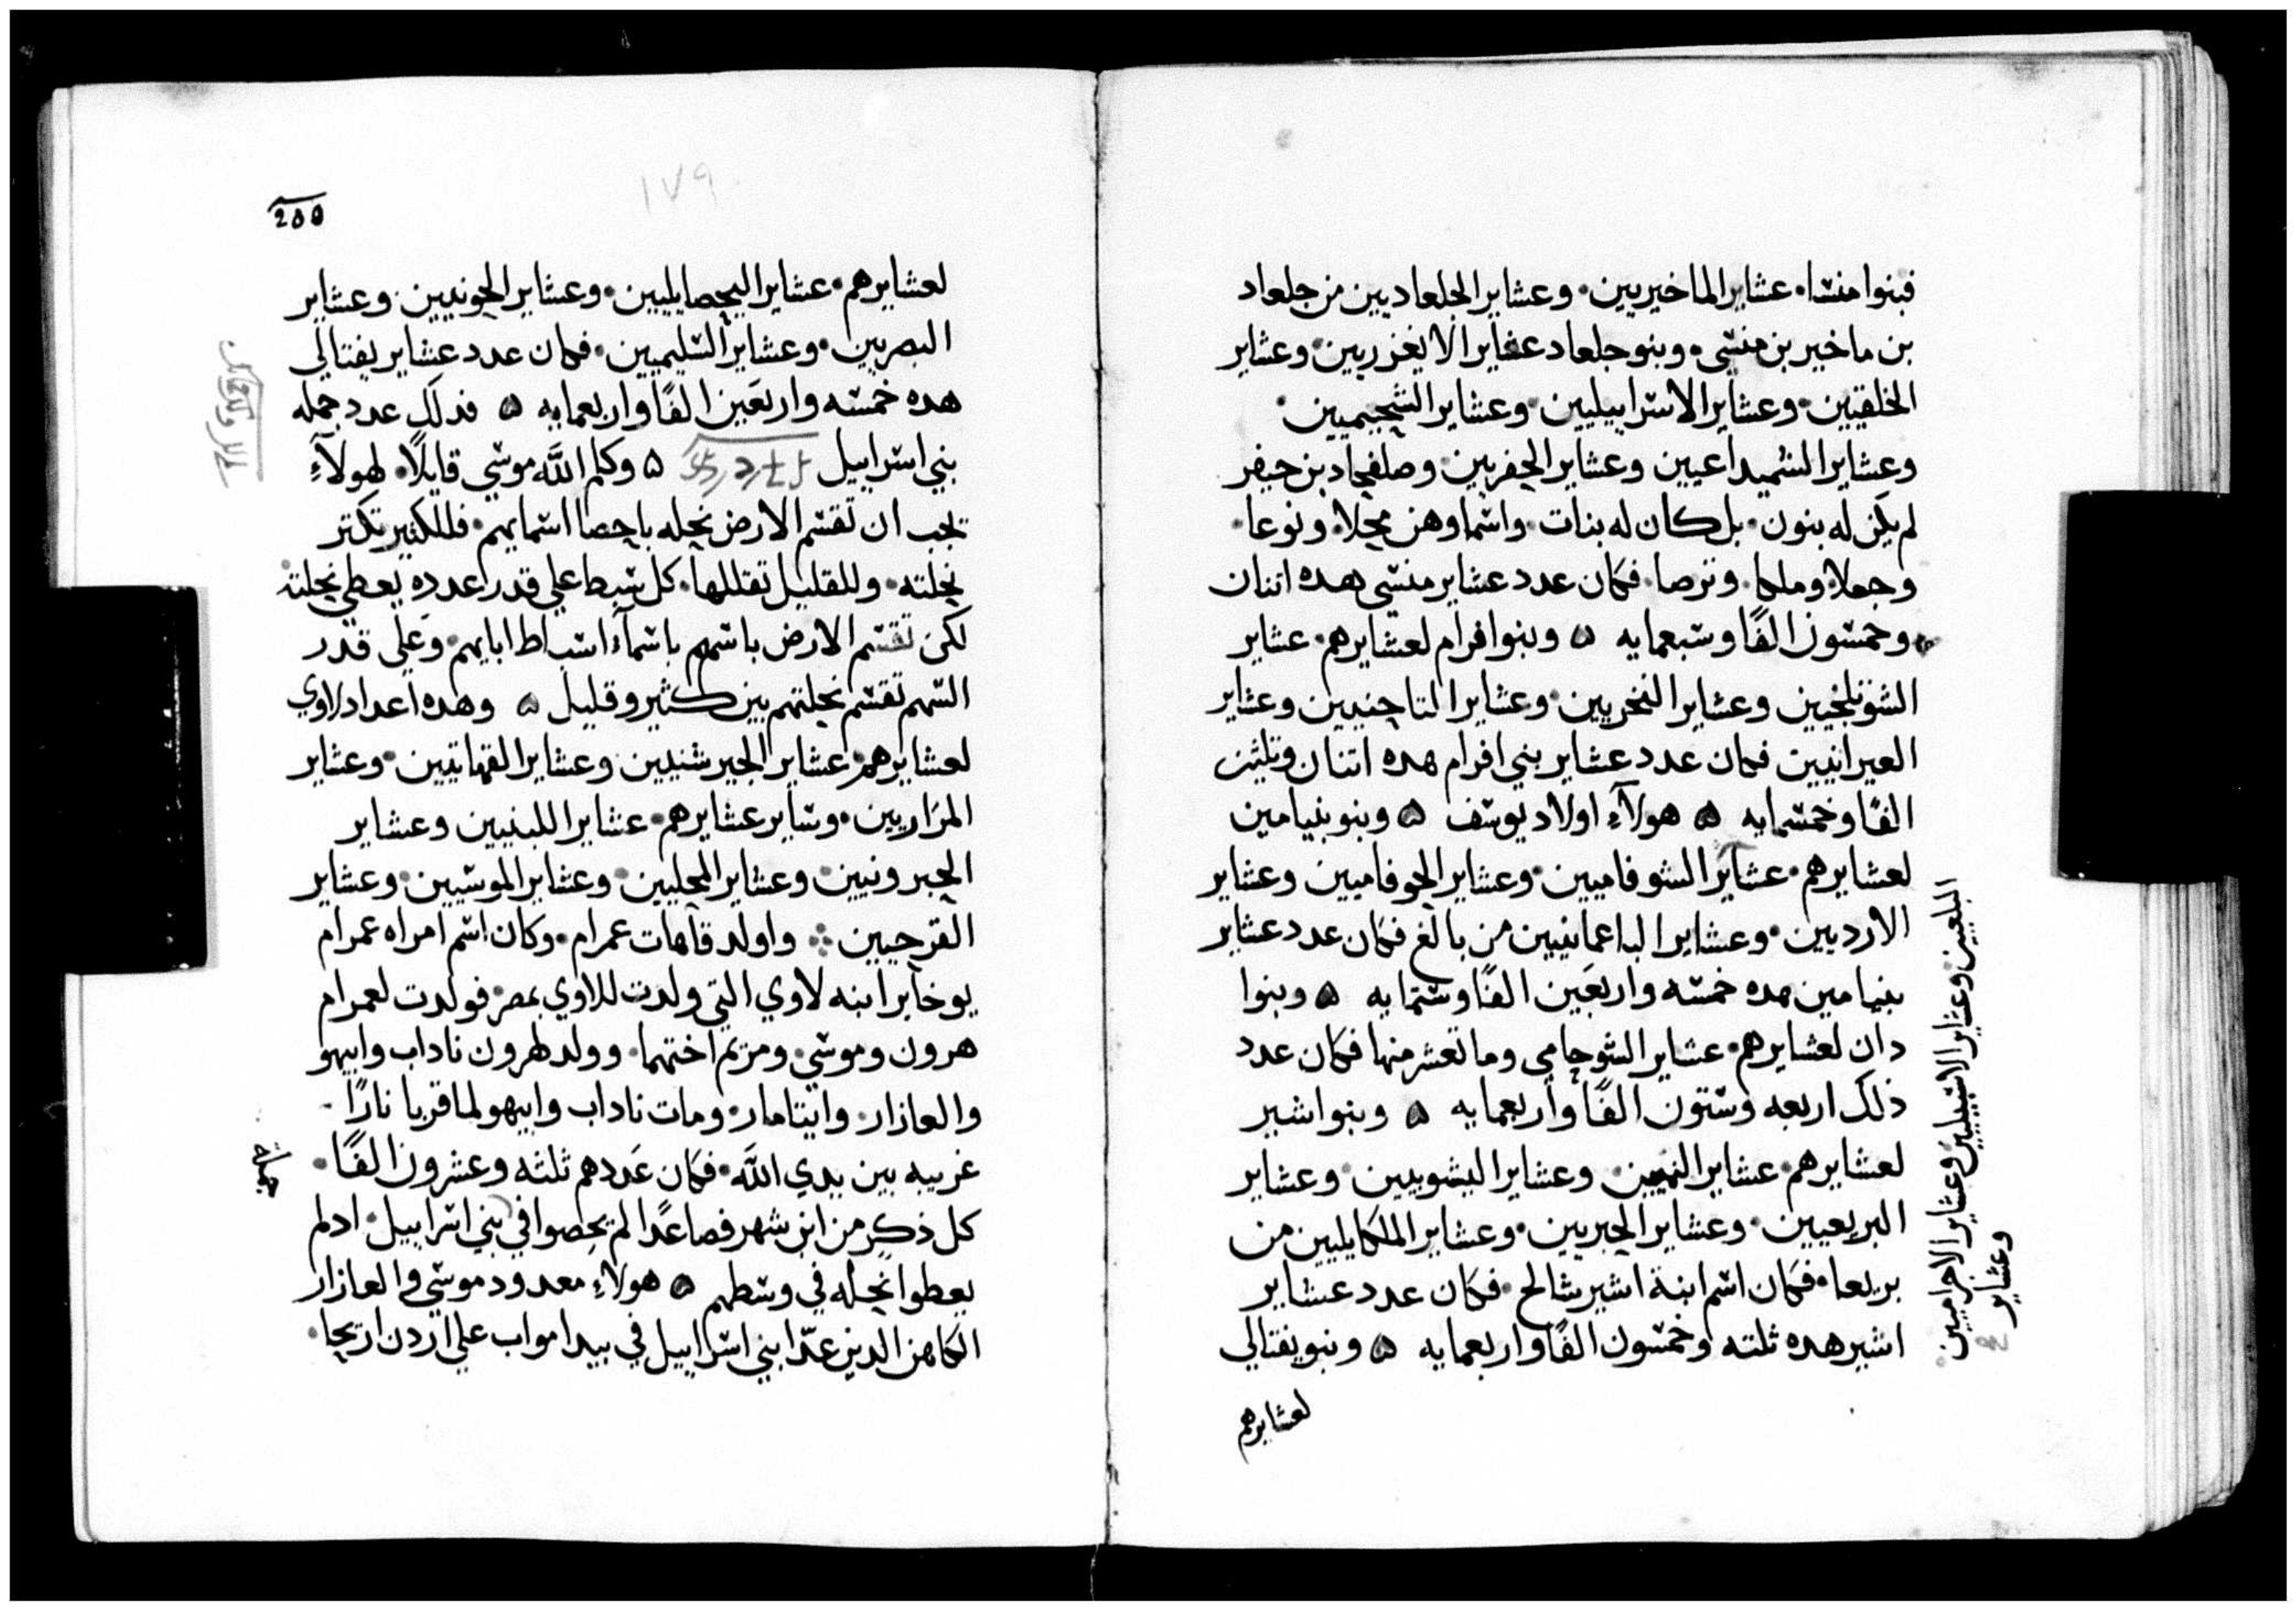 فبنوا منشا. عشاير الماخيريين. وعشاير الجلعاديين من جلعاد
بن ماخير بن منشي. وبنو جلعاد عشاير الايغزريين. وعشاير
الخلقيين. وعشاير الاسراييليين. وعشاير الشجيميين.
وعشاير الشميداعيين وعشاير الحفريين. وصلفحاد بن حيفر
لم يكن له بنون. بل كان له بنات. واسماوهن محلا. ونوعا.
وجعلا. وملكا. وترصا. فكان عدد عشاير منشي هده اتنان
وخمسون الفًا وسبعمايه ه وبنوا فرام لعشايرهم. عشاير
وعشاير النخريين. وعشاير التاحنيين وعشاير
العيرانيين فكان عدد عشاير بني افرام هده اتنان وتلثين
الفًا وخمسمايه ه هولآءِ اولاد يوسف ه وبنو بنيامين
لعشايرهم. عشاير الشوفاميين. وعشاير الحوفاميين وعشاير
الارديين. وعشاير الباعمانيين من بالغ فكان عدد عشاير
بنيامين هده خمسه واربعَين الفًا وستمايه ه وبنوا
دان لعشايرهم. عشاير الشوحامي وما تعشر منها فكان عدد
ذلك اربعه وستون الفًا واربعمايه ه وبنوا شير
لعشايرهم. عشاير اليمنيين. وعشاير اليشويين. وعشاير
البريعيين. وعشاير الحبريين. وعشاير الملكايليين من
بريعا. فكان اسم ابنة اشير شالح. فكان عدد عشاير
اشير هده ثلته وخمسون الفًا واربعمايه ه وبنو يفتالي
لعشايرهم
البلعيين وعشاير الاشبيليين وعشاير الاجراميين
وعشاير
١٧٩
200
لعشايرهم. عشاير اليحصايليين. وعشاير الجونيين. وعشاير
اليصريين. وعشاير الشليميين. فكان عدد عشاير يفتالي
هده خمسه واربعَين الفًا واربعمايه ه فدلك عدد جمله
بني اسراييل ه وكلم اللَّه موسي قايلًا. لهولآءِ
تجب ان تقسم الارض نحله باحصا اسمايهم. فللكثير تكتر
نحلته. وللقليل تقللها. كل سبط علي قدر عدده يعطي نحلته
لكن تقسم الارض باسهم باسمآءَ اسباط ابايهم. وعلي قدر
السهم تقسم نحلتهم بين كثير وقليل ه وهده اعداد لاوي
لعشايرهم. عشاير الجيرشنيين وعشاير القهاتيين. وعشاير
المرَاريين. وساير عشايرهم. عشاير اللبنيين وعشاير
الحبرونيين وعشاير المحليين. وعشاير الموشيين. وعشاير
القرحيين. واولد قاهات عمرام. وكان اسم امراه عمرام
يوخابر ابنه لاوي التي ولدت للاوي بمصر. فولدت لعمرام
هرون وموسي. ومريم اختهما. وولد لهرون ناداب وابيهو
والعازار. وايتامار. ومات ناداب وابيهو لما قربا نارًا
غريبه بين يدي اللَّه. فكان عَددهم ثلثه وعشرون الفًا.
كل ذكر من ابن شهر فصاعدًا لم يحصوا في بني اسراييل. ادلم
يعطوا نحله في وسطهم ه هولآءِ معدود موسي والعازار
الكاهن الدين عدّا بني اسراييل في بيدا مواب علي اردن اريحا.